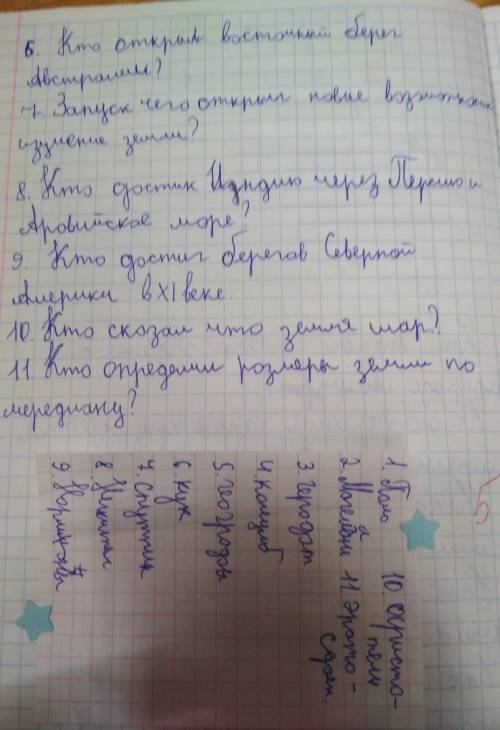 6. Кто открыл восточный берег
Австралии?
7. Запуск чего открыл новые возможност
изучение земли?
8. Кто достик Индию через Персию и
Аровийское море?
9. Кто достиг берегов Северной
Америки в XI веке.
10. Кто сказал что земля шар?
11. Кто определил розмеры земли по
мередиану?
1. Поло
2. Магелван
3 геродот
4. колумб
5. географы
6. кук
7. спутник
8. Никитин
9 Норман-ны
10. аристо-
тель
11 эрато-
сфен.
5